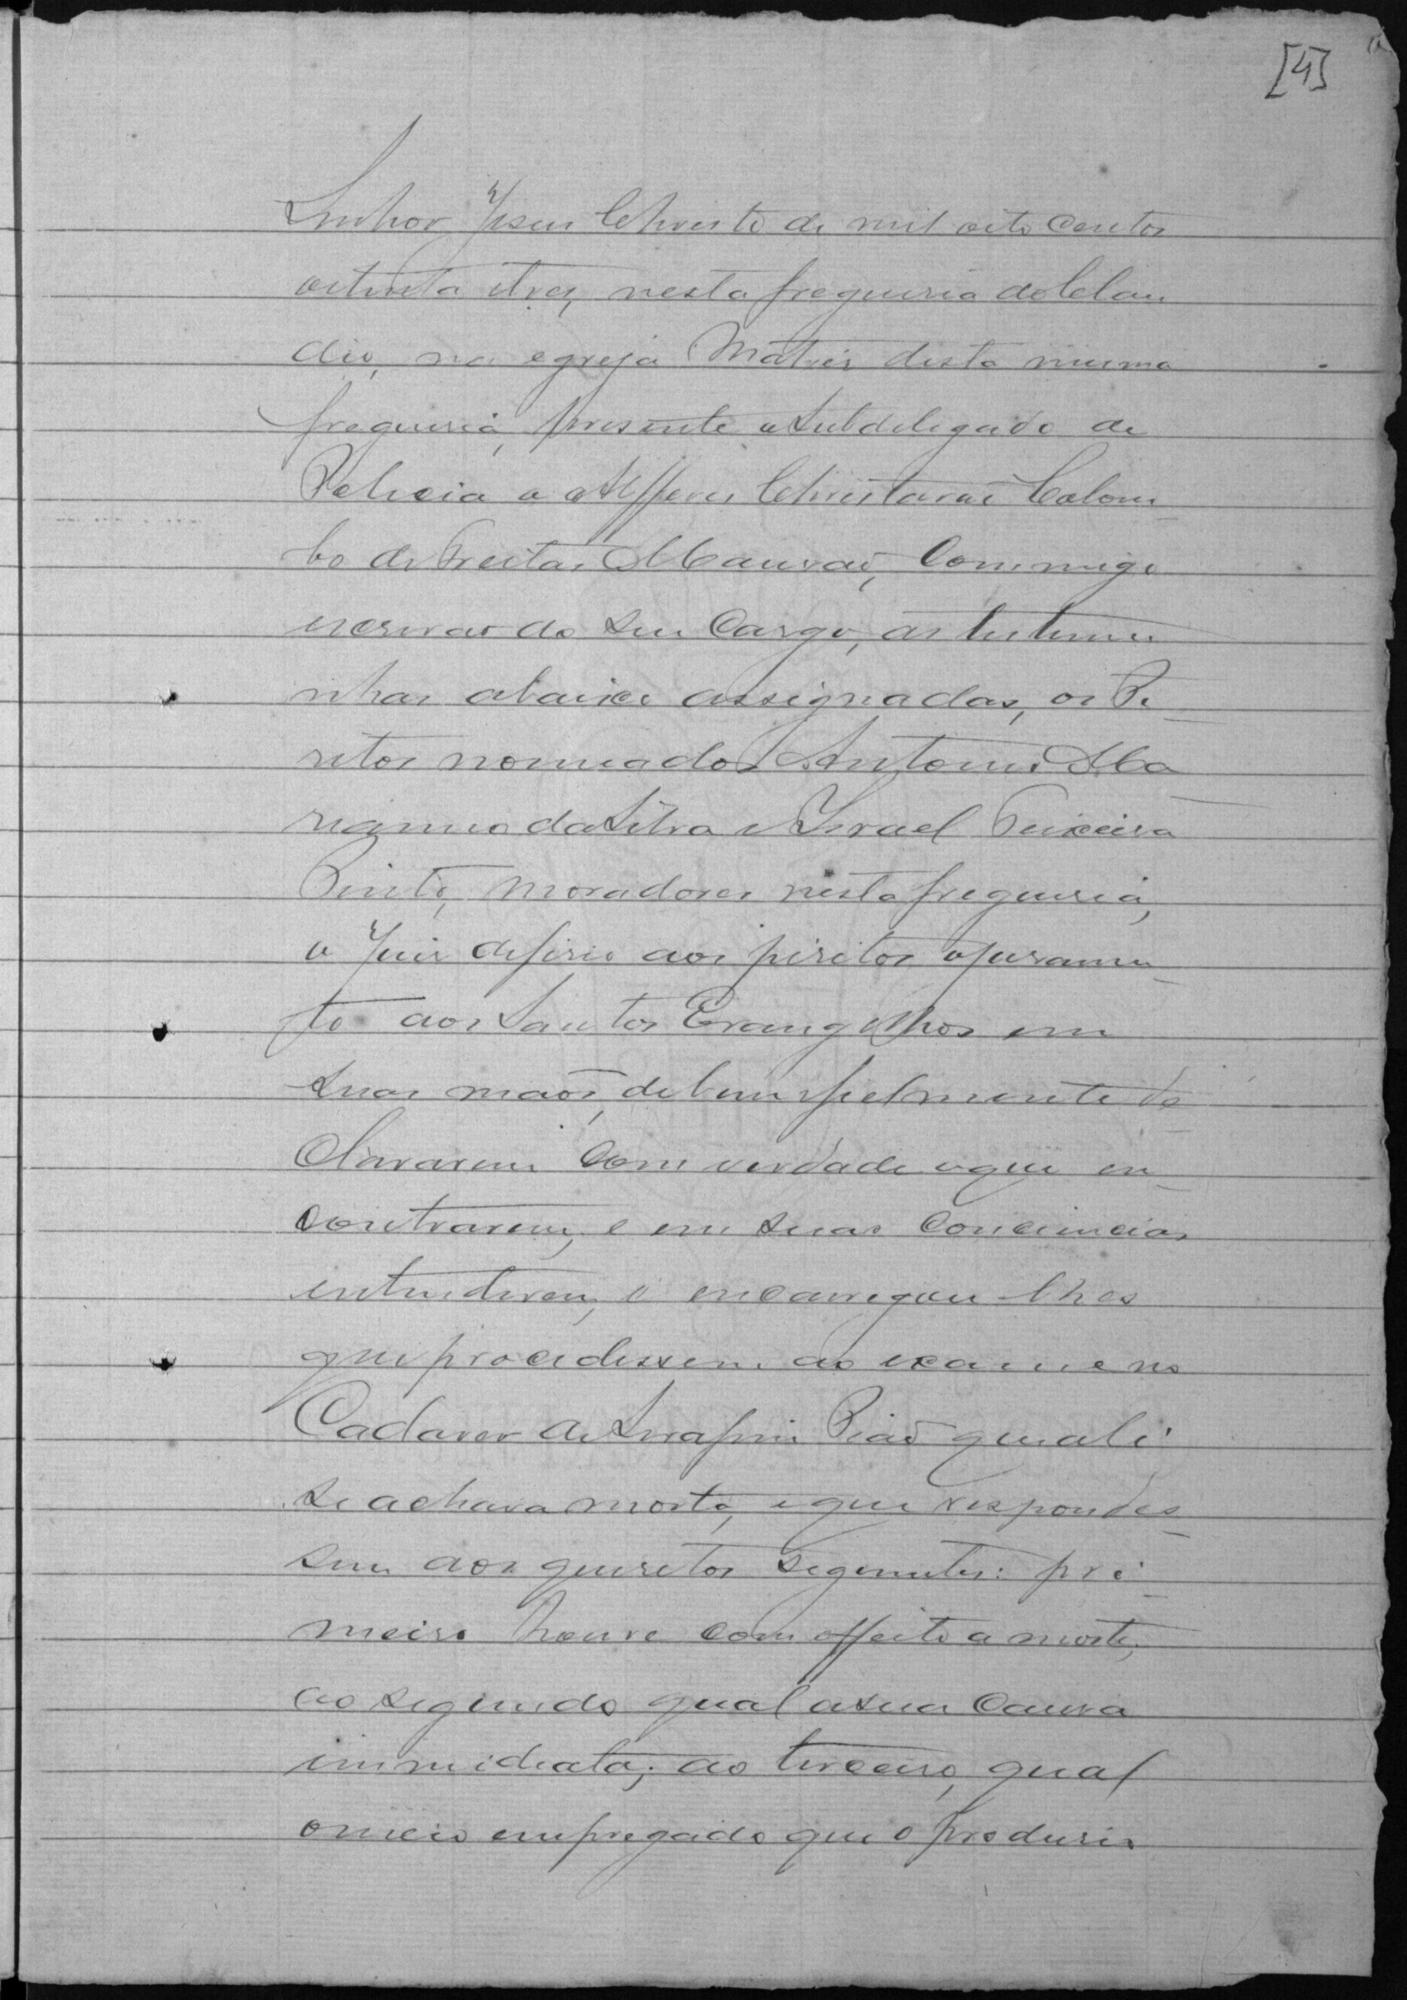 [4]
Senhor Jesus Christo de mil oito centos
oitenta e tres, nesta freguesia do Clau
dio, na egreja Matris desta mesma
freguesia, presente o Subdelegado de
Policia o Alfferes Christovaõ Colom
bo de Freitas Mouraõ, Commigo
escrivaõ do seu Cargo, as testemu
nhas abaixo assignadas, os Pe
ritos nomeados Antonio Ma
rianno da Silva e Israel Teixeira
Pinto, moradores nesta freguesia,
o Juis deferio aos peritos o juramen
to aos Santos Evangelhos em
suas maõs, de bem e fielmente de
clararem com verdade o que en
contrarem, e em suas conciencias
entenderem, e encarregou-lhes
que procedessem ao exame no
Cadaver de Serafim Piaõ que ali
se achava morto, e que respondes
sem aos quesitos seguintes: pri
meiro houve com effeito a morte,
ao segundo qual a sua Causa
immediata; ao terceiro, qual
o meio empregado que o produsio